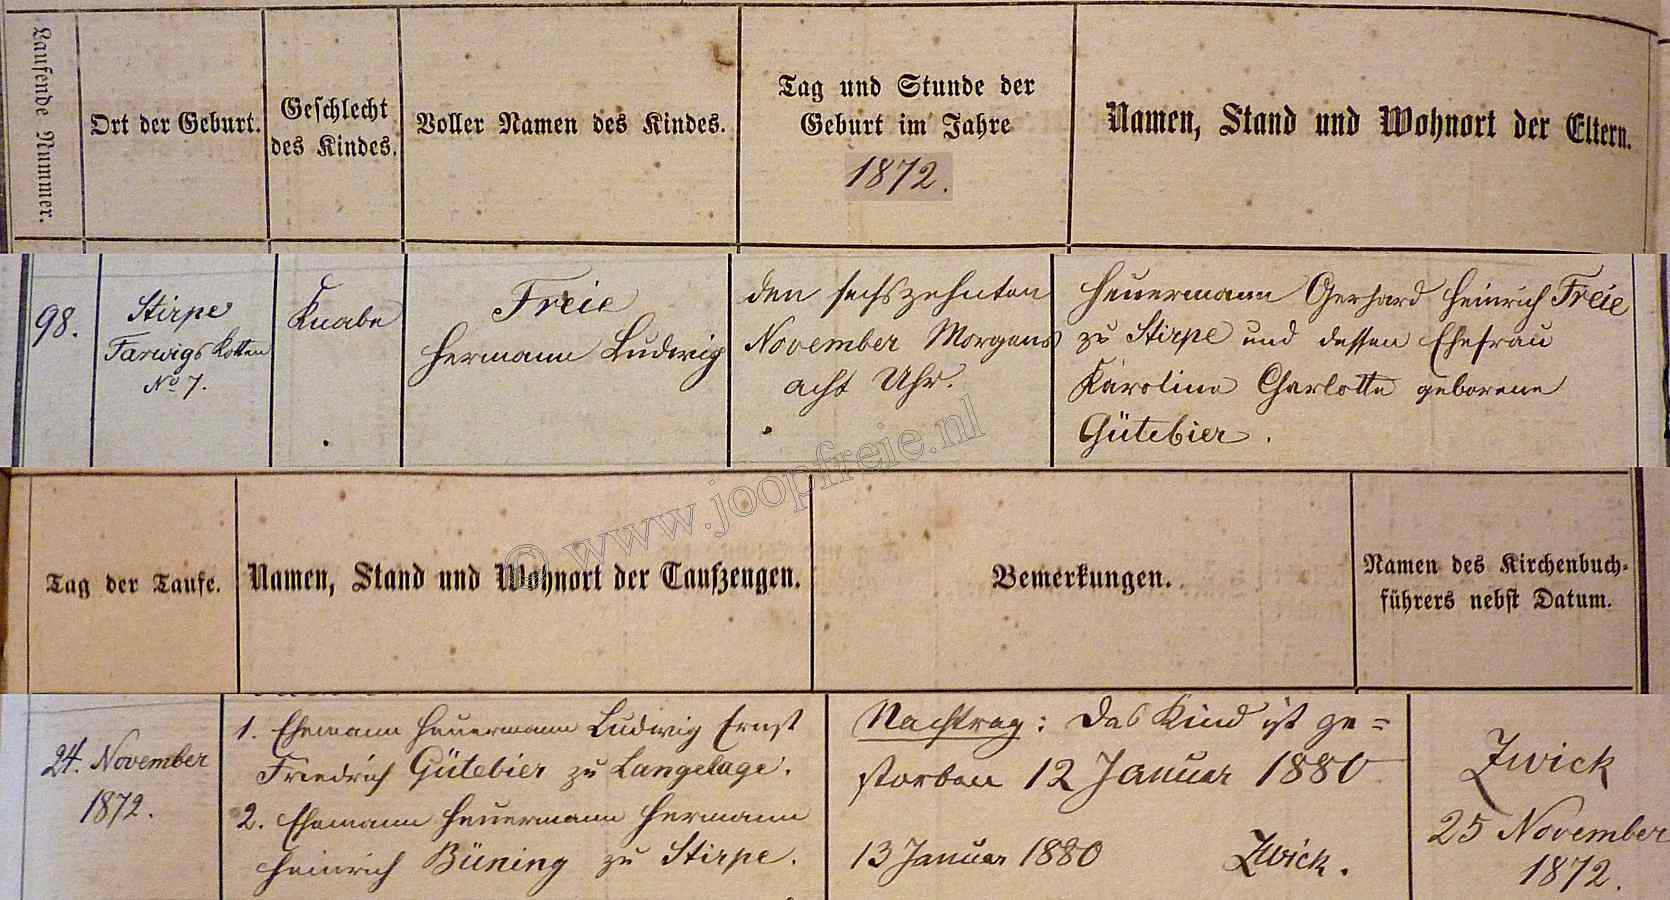 Laufende Nummer.
Ort der Geburt.
Geschlecht
des Kindes.
Voller Namen des Kindes.
Tag und Stunde der
Geburt im Jahre
1872.
Namen, Stand und Wohnort der Eltern.
98.
Stirpe
Farwigs Kotten
No 7.
Knabe
Freie
Hermann Ludwig
den sechszehnten
November Morgens
acht Uhr.
Heuermann Gerhard Heinrich Freie
zu Stirpe und dessen Ehefrau
Karoline Charlotte geborene
Gütebier.
© www.joopfreie.nl
Tag der Taufe.
Namen, Stand und Wohnort der Taufzeugen.
Bemerkungen.
Namen des Kirchenbuch-
führers nebst Datum.
24. November
1872.
1. Ehemann Heuermann Ludwig Ernst
Friedrich Gütebier zu Langelage.
2. Ehemann Heuermann Hermann
Heinrich Büning zu Stirpe.
Nachtrag: Das Kind ist ge=
storben 12 Januar 1880
13 Januar 1880 Zwick.
Zwick
25 November
1872.